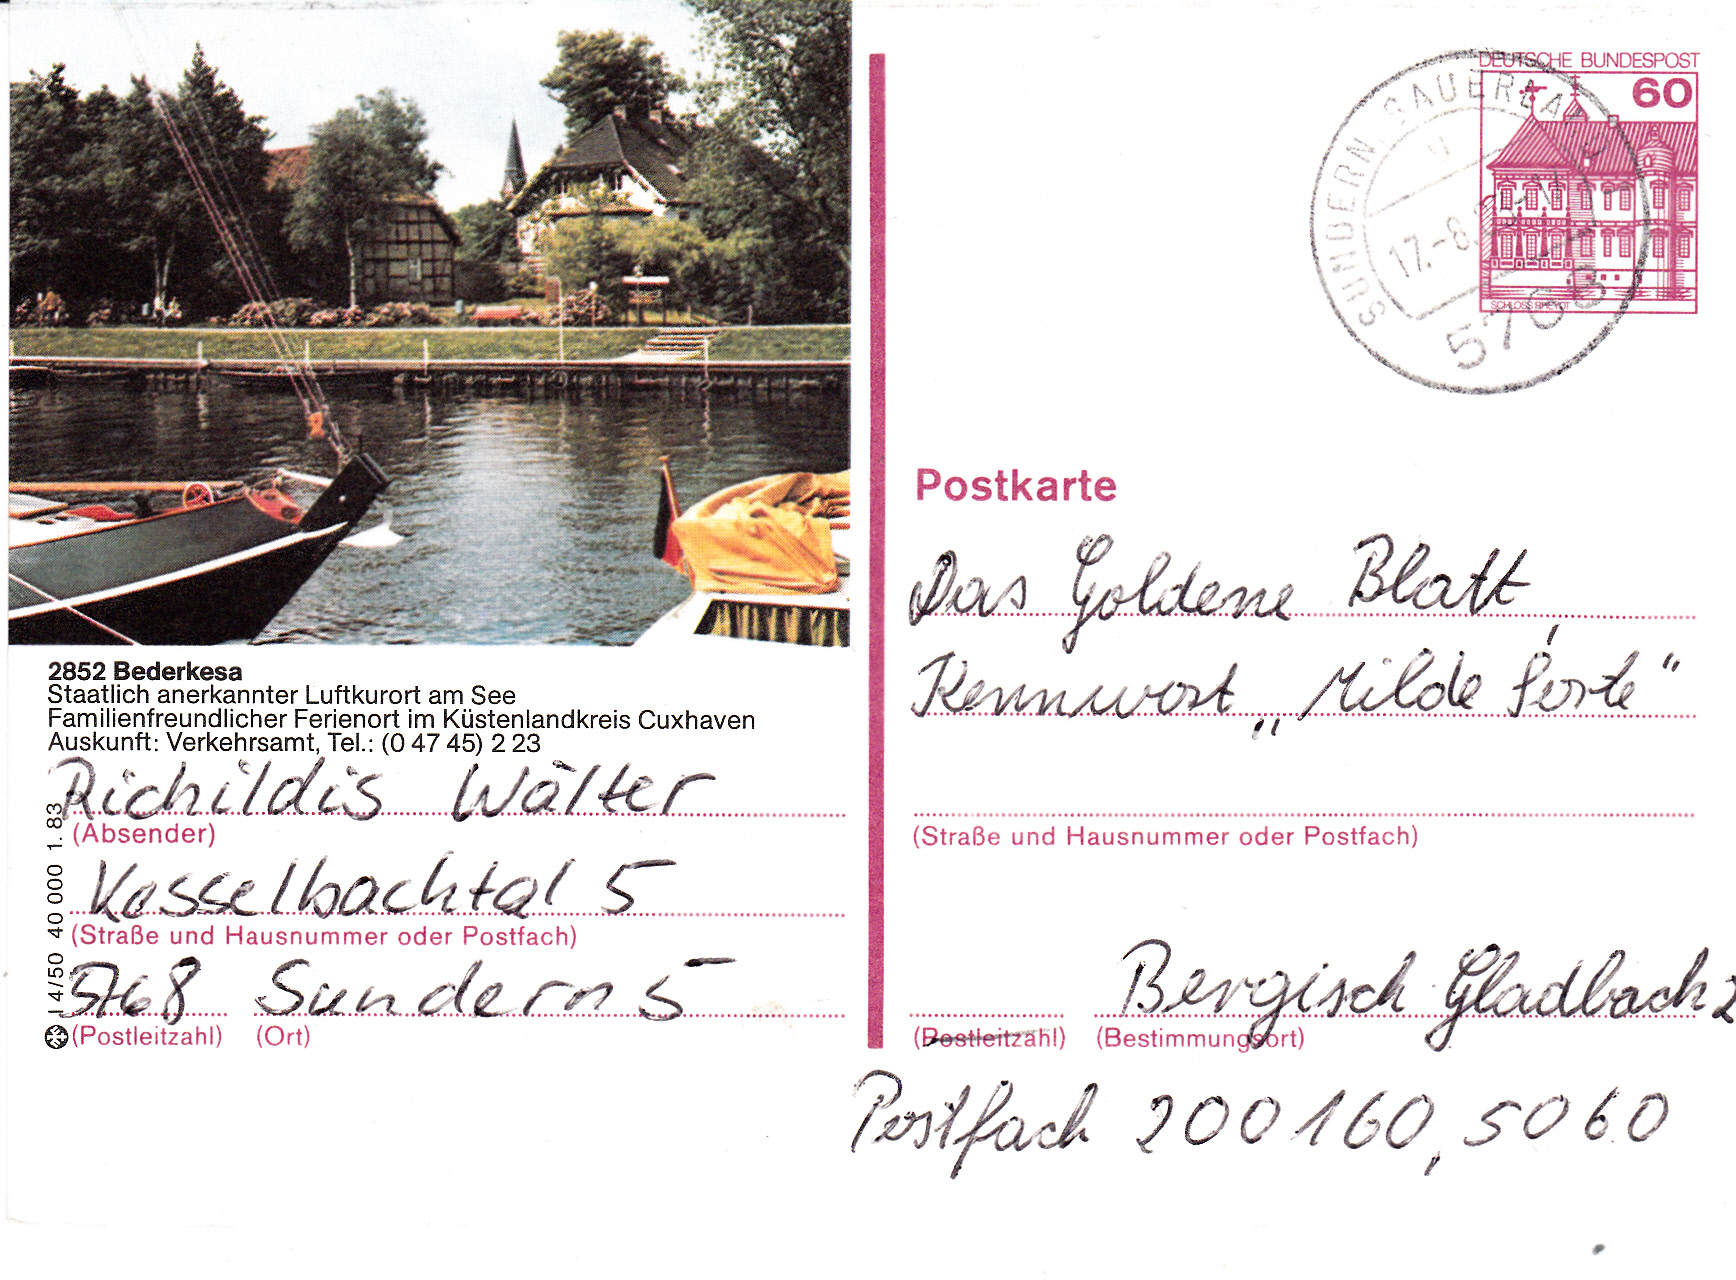 2852 Bederkesa
Staatlich anerkannter Luftkurort am See
Familienfreundlicher Ferienort im Küstenlandkreis Cuxhaven
Auskunft: Verkehrsamt, Tel.: (0 47 45) 2 23
Richildis Wälter
(Absender)
Kesselbachtal 5
(Straße und Hausnummer oder Postfach)
5768 Sundern 5
(Postleitzahl) (Ort)
I 4/50 40 000 1. 83
DEUTSCHE BUNDESPOST
60
SCHLOSS RHEYDT
SUNDERN SAUERLAND
17.-8.
5768
Postkarte
Das Goldene Blatt
Kennwort „Milde Sorte“
(Straße und Hausnummer oder Postfach)
Bergisch Gladbach 2
(Postleitzahl) (Bestimmungsort)
Postfach 200160, 5060